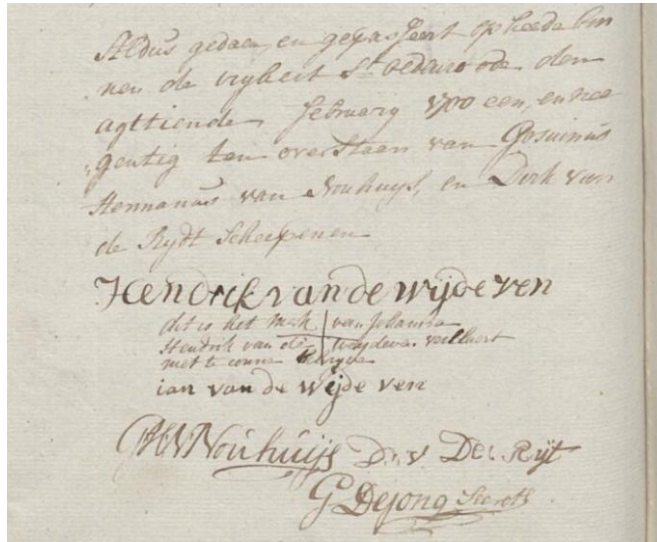 Aldus gedaen, en gepasseert op heede bin
nen de vryheit St oedenroode den
agttiende february 1700 een, en nee
gentig ten overstaan van Gosuinus
Hermanus van Nouhuys, en Dirk van
de Rydt Scheepenen
Hendrik van de wijdeven
dit is het merk van Johanna
Hendrik van de Weydeven verklaert
met te conne schryve
ian van de wijde ven
GHV Nouhuijs D: v De: Rijt
G Dejong Secrets